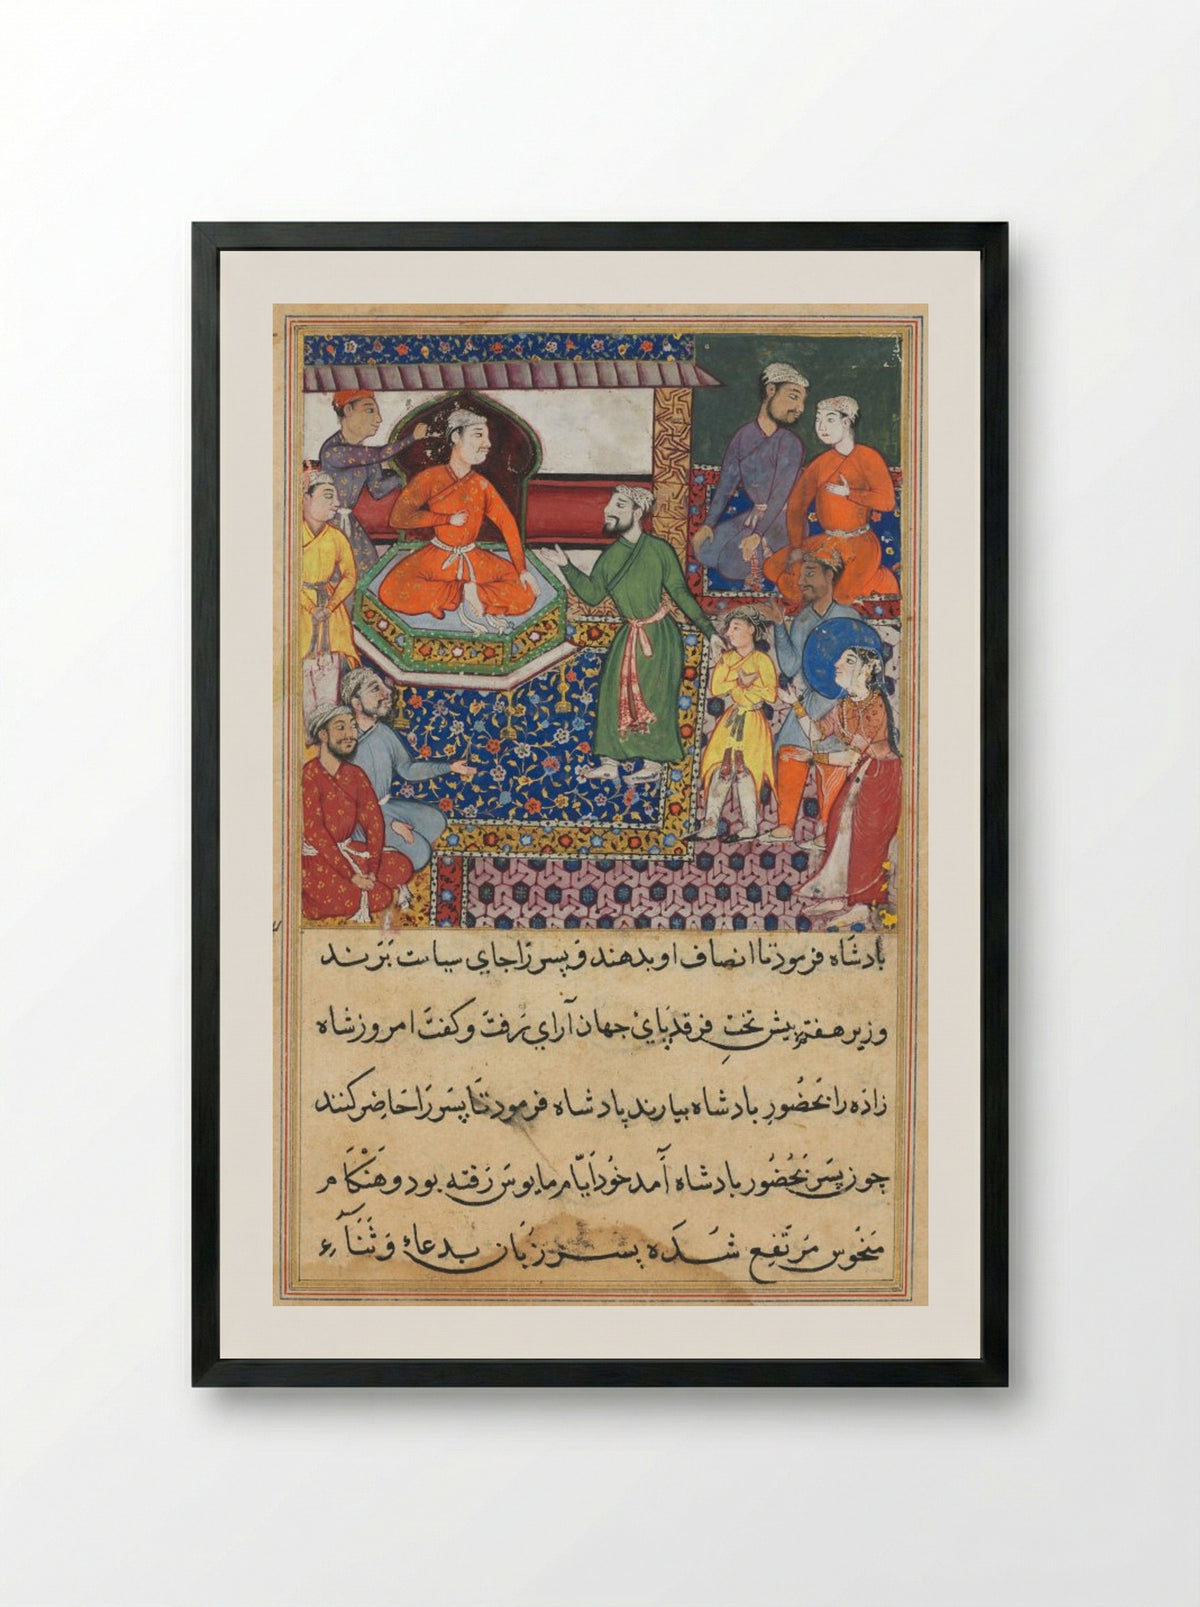 بادشاه فرمود تا انصاف او بدهند و پسر را جای سیاست برند
وزیر هفتم پیش تخت فرقد پای جهان آرای رفت و گفت امروز شاه
زاده را بحضور بادشاه بیارند پادشاه فرمود تا پسر را حاضر کنند
چون پسر بحضور بادشاه آمد خود ایام مایوس رفته بود و هنکام
منحوس مرتفع شده پسر زبان بدعاء و ثناء